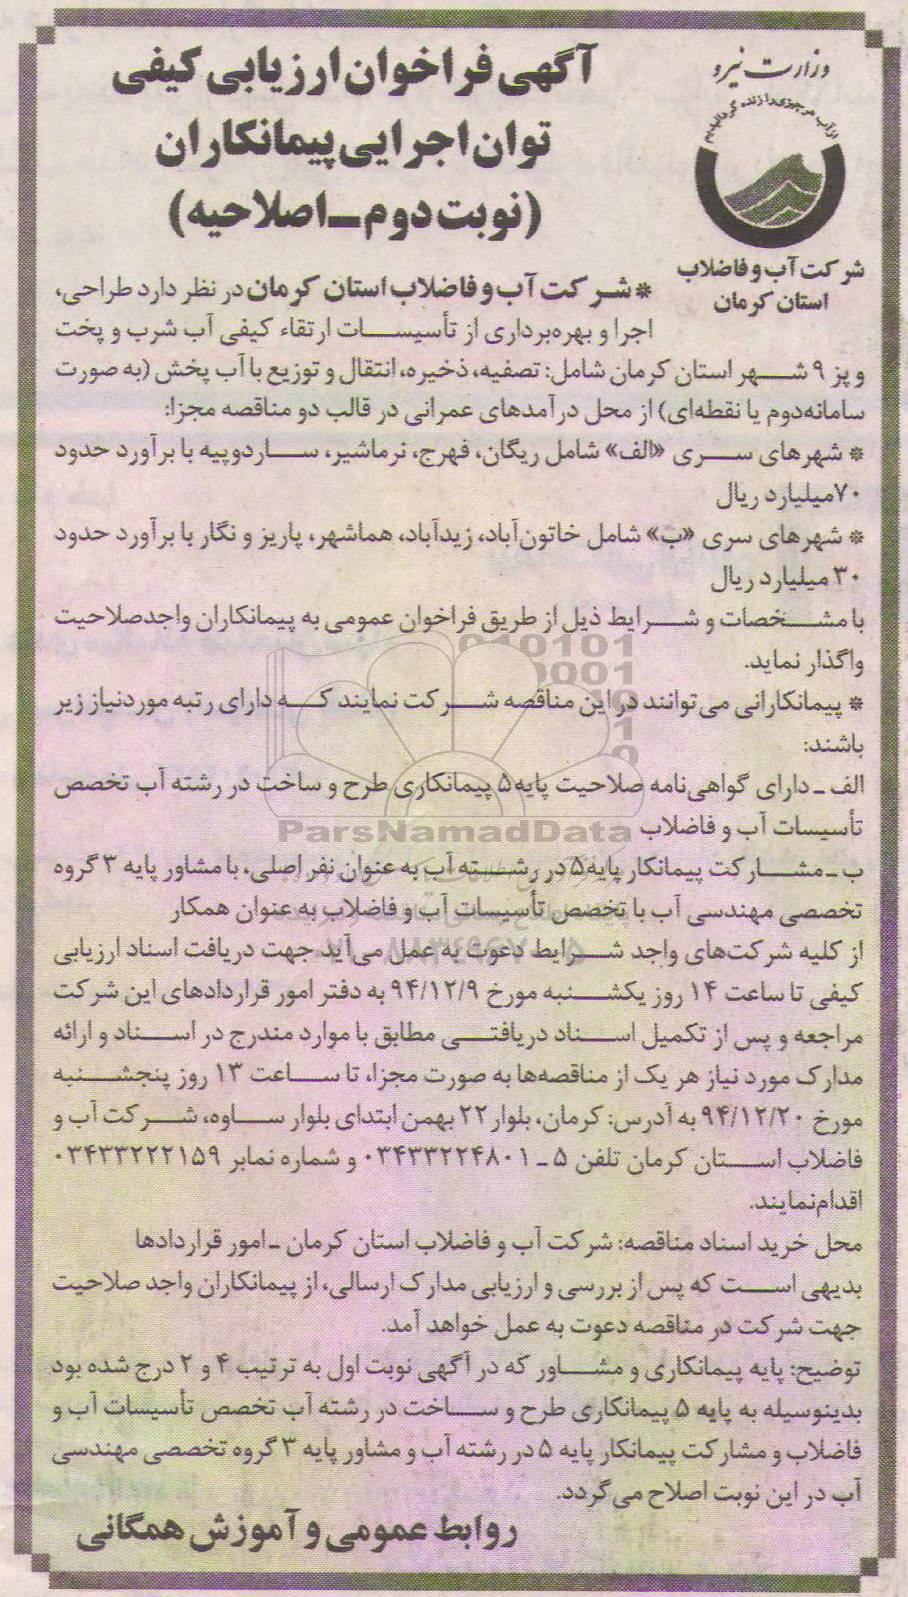 وزارت نیرو
از آب هر چیزی را زنده گردانیدیم
شرکت آب و فاضلاب
استان کرمان
آگهی فراخوان ارزیابی کیفی
توان اجرایی پیمانکاران
(نوبت دوم ـ اصلاحیه)
* شرکت آب و فاضلاب استان کرمان در نظر دارد طراحی،
اجرا و بهره‌برداری از تأسیسات ارتقاء کیفی آب شرب و پخت
و پز ۹ شهر استان کرمان شامل: تصفیه، ذخیره، انتقال و توزیع با آب پخش (به صورت
سامانه‌دوم یا نقطه‌ای) از محل درآمدهای عمرانی در قالب دو مناقصه مجزا:
* شهرهای سری «الف» شامل ریگان، فهرج، نرماشیر، ساردوییه با برآورد حدود
۷۰میلیارد ریال
* شهرهای سری «ب» شامل خاتون‌آباد، زیدآباد، هماشهر، پاریز و نگار با برآورد حدود
۳۰ میلیارد ریال
با مشخصات و شرایط ذیل از طریق فراخوان عمومی به پیمانکاران واجدصلاحیت
واگذار نماید.
* پیمانکارانی می‌توانند در این مناقصه شرکت نمایند که دارای رتبه موردنیاز زیر
باشند:
الف ـ دارای گواهی‌نامه صلاحیت پایه ۵ پیمانکاری طرح و ساخت در رشته آب تخصص
تأسیسات آب و فاضلاب
ParsNamadData
ب ـ مشارکت پیمانکار پایه ۵ در رشته آب به عنوان نفر اصلی، با مشاور پایه ۳ گروه
تخصصی مهندسی آب با تخصص تأسیسات آب و فاضلاب به عنوان همکار
از کلیه شرکت‌های واجد شرایط دعوت به عمل می‌آید جهت دریافت اسناد ارزیابی
کیفی تا ساعت ۱۴ روز یکشنبه مورخ ۹۴/۱۲/۹ به دفتر امور قراردادهای این شرکت
مراجعه و پس از تکمیل اسناد دریافتی مطابق با موارد مندرج در اسناد و ارائه
مدارک مورد نیاز هر یک از مناقصه‌ها به صورت مجزا، تا ساعت ۱۳ روز پنجشنبه
مورخ ۹۴/۱۲/۲۰ به آدرس: کرمان، بلوار ۲۲ بهمن ابتدای بلوار ساوه، شرکت آب و
فاضلاب استان کرمان تلفن ۵ ـ ۰۳۴۳۳۲۲۴۸۰۱ و شماره نمابر ۰۳۴۳۳۲۲۲۱۵۹
اقدام‌نمایند.
محل خرید اسناد مناقصه: شرکت آب و فاضلاب استان کرمان ـ امور قراردادها
بدیهی است که پس از بررسی و ارزیابی مدارک ارسالی، از پیمانکاران واجد صلاحیت
جهت شرکت در مناقصه دعوت به عمل خواهد آمد.
توضیح: پایه پیمانکاری و مشاور که در آگهی نوبت اول به ترتیب ۴ و ۲ درج شده بود
بدینوسیله به پایه ۵ پیمانکاری طرح و ساخت در رشته آب تخصص تأسیسات آب و
فاضلاب و مشارکت پیمانکار پایه ۵ در رشته آب و مشاور پایه ۳ گروه تخصصی مهندسی
آب در این نوبت اصلاح می‌گردد.
روابط عمومی و آموزش همگانی